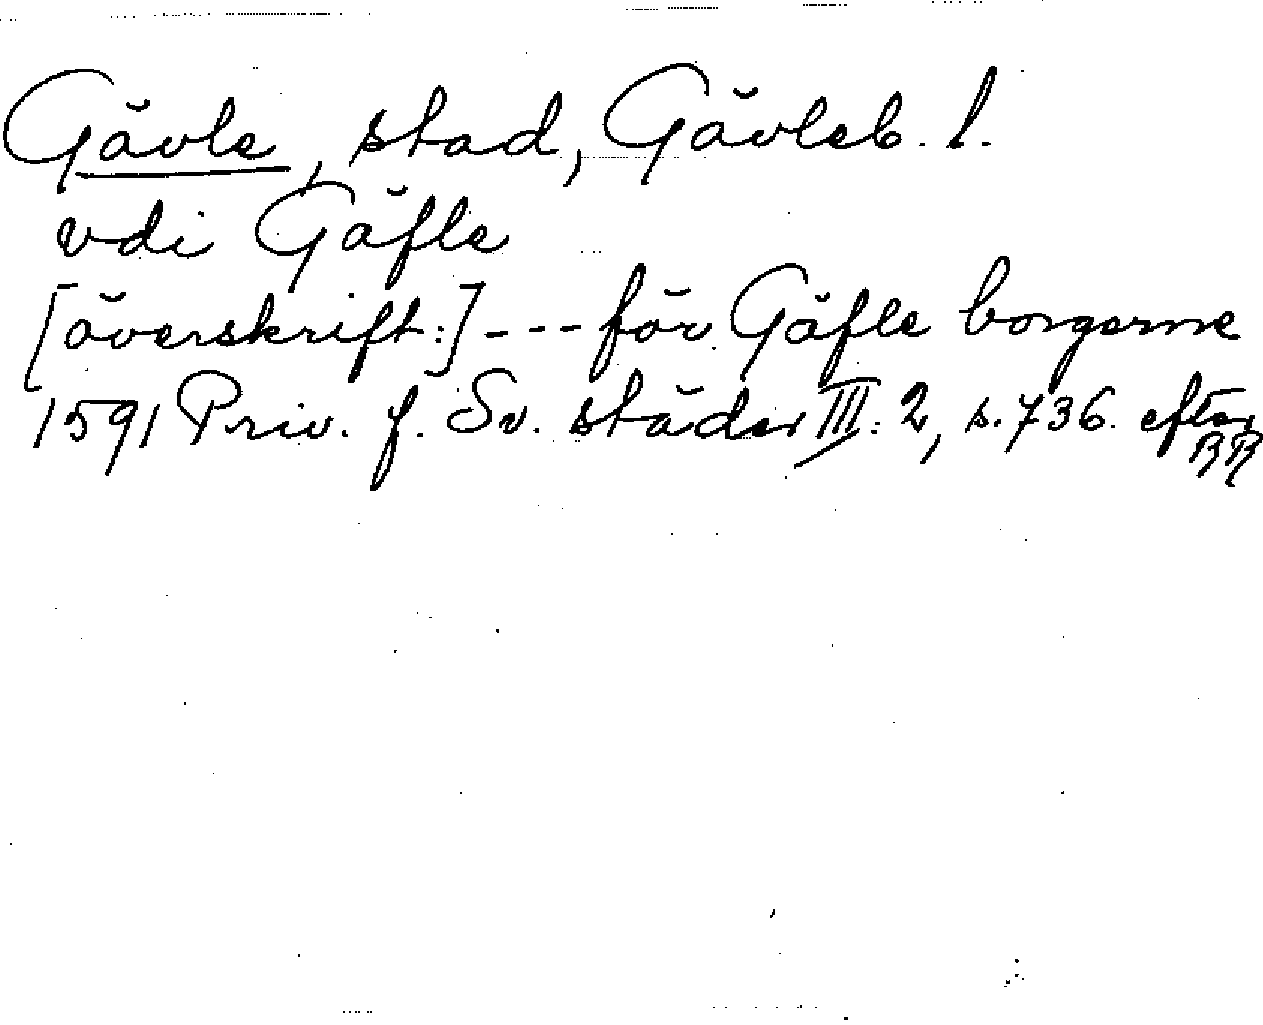 Gävle, stad, Gävleb. l.
vdi Gäfle
[överskrift:] --- för Gäfle borgerne
1591 Priv. f. Sv. städer III: 2, s. 736. efter
RR